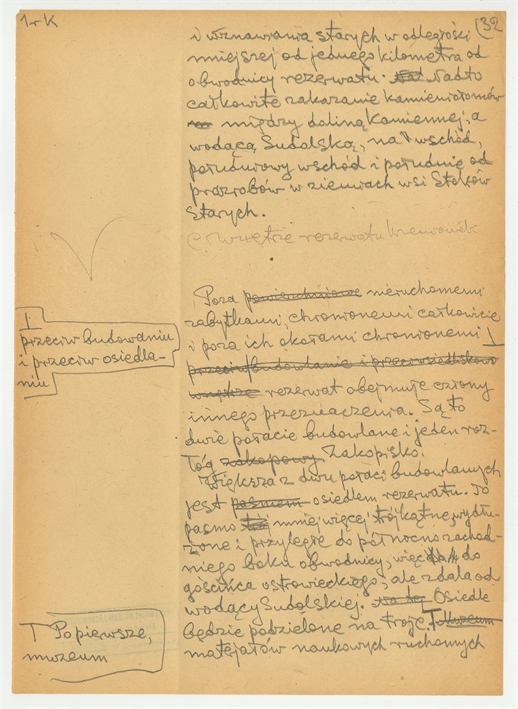 1rK
(32
i wznawiania starych w odległości
mniejszej od jednego kilometra od
obwodnicy rezerwatu. Nadto
całkowite zakazanie kamieniołomów
między doliną Kamiennej, a
wodącą Sudolską, na wschód,
południowy wschód i południe od
prazrobów w ziemiach wsi Stoków
Starych.
wnętrze rezerwatu
Poza nieruchomemi
zabytkami, chronionemi całkowicie
i poza ich okołami chronionemi I
I
przeciw budowaniu
i przeciw osiedla-
niu
przeciw budowlanie i przeciw
wnętrze rezerwat obejmuje człony
innego przeznaczenia. Są to
dwie połacie budowlane i jeden roz-
łóg zakopowy Zakopisko.
Większa z dwu połaci budowlanych
jest pasmem osiedlem rezerwatu. To
pasmo mniej więcej trójkątne, wydłu-
żone i przyległe do północno zachod-
niego boku obwodnicy, więc do
gościńca ostrowieckiego, ale zdala od
wodący Sudolskiej. Osiedle
będzie podzielone na troje. T Muzeum
T Po pierwsze,
muzeum
materjałów naukowych ruchomych